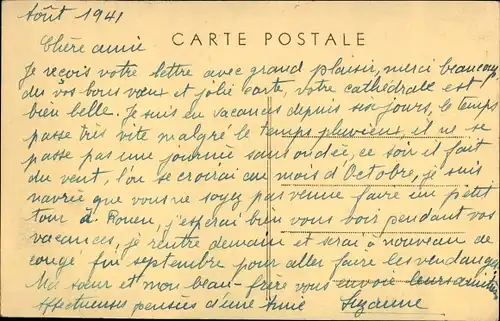 Août 1941
Chère amie
CARTE POSTALE
Je reçois votre lettre avec grand plaisir, merci beaucoup
des vos bons vœux et jolie carte, votre cathédrale est
bien belle. Je suis en vacances depuis six jours, le temps
passe très vite malgré le temps pluvieux, il ne se
passe pas une journée sans ondée, ce soir il fait
du vent, l'on se croirai au mois d'Octobre, je suis
navrée que vous ne soyez pas venue faire un petit
tour à Rouen, j'espérai bien vous voir pendant vos
vacances, je rentre demain et serai à nouveau de
congé fin septembre pour aller faire les vendanges
Ma sœur et mon beau-frère vous envoie leurs amitiés
Affectueuses pensées d'une Amie Suzanne